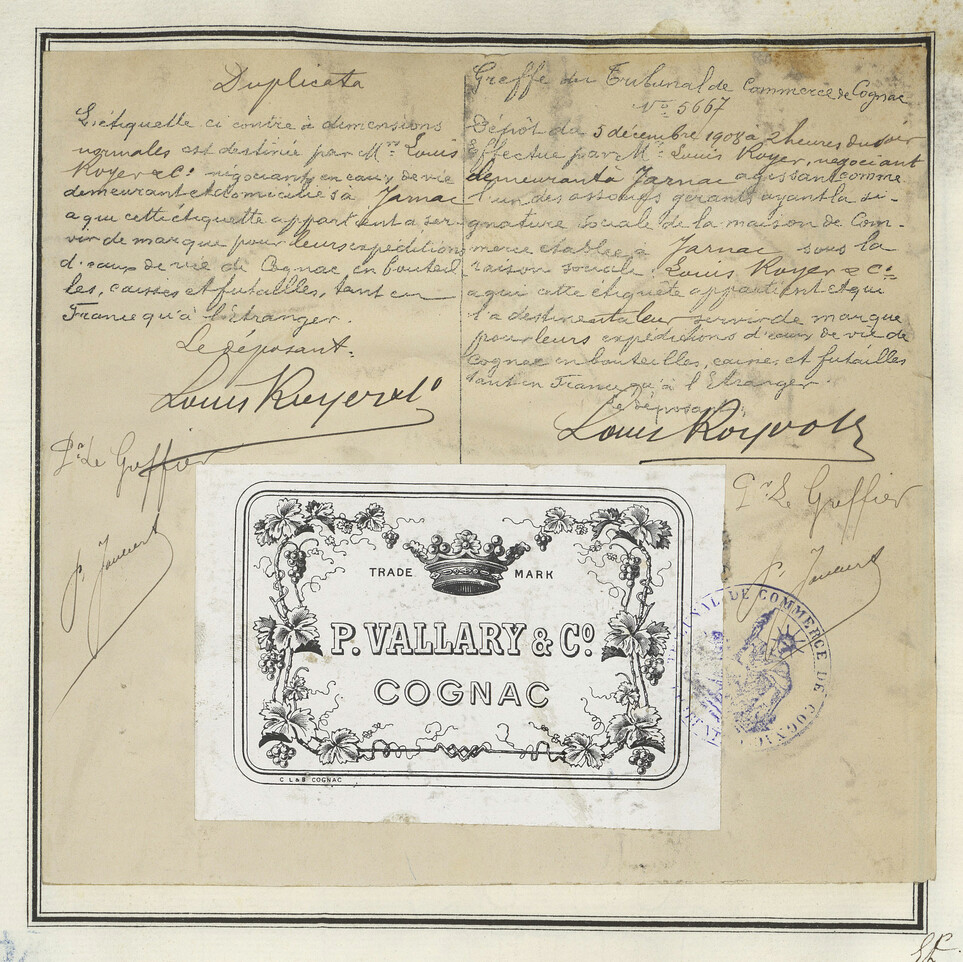 Duplicata
L'étiquette ci contre à dimensions
normales est destinée par Mrs Louis
Royer & Co negociants en eaux de vie
demeurant et domiciliés à Jarnac
a qui cette étiquette appartient a ser-
vir de marque pour leurs expéditions
d'eaux de vie de Cognac en bouteil-
les, caisses et futailles, tant en
France qu'à l'étranger.
Le déposant.
Louis Royer & Co
Pr Le Greffier
Greffe du Tribunal de Commerce de Cognac
No 5667
Dépôt du 5 décembre 1908 a 2 heures du soir
Effectué par Mr Louis Royer, negociant
demeurant à Jarnac agissant comme
l'un des associés gerants ayant la si-
gnature sociale de la maison de Com-
merce etablie à Jarnac sous la
raison sociale Louis Royer & Co
a qui cette étiquète appartient et qui
l'a destine a leur servir de marque
pour leurs expéditions d'eaux de vie de
Cognac en bouteilles, caisses et futailles
tant en France qu'à l'Etranger.
Le déposant
Louis Royer & Co
Pr Le Greffier
TRADE MARK
P. VALLARY & Co.
COGNAC
C L & B COGNAC
TRIBUNAL DE COMMERCE DE COGNAC